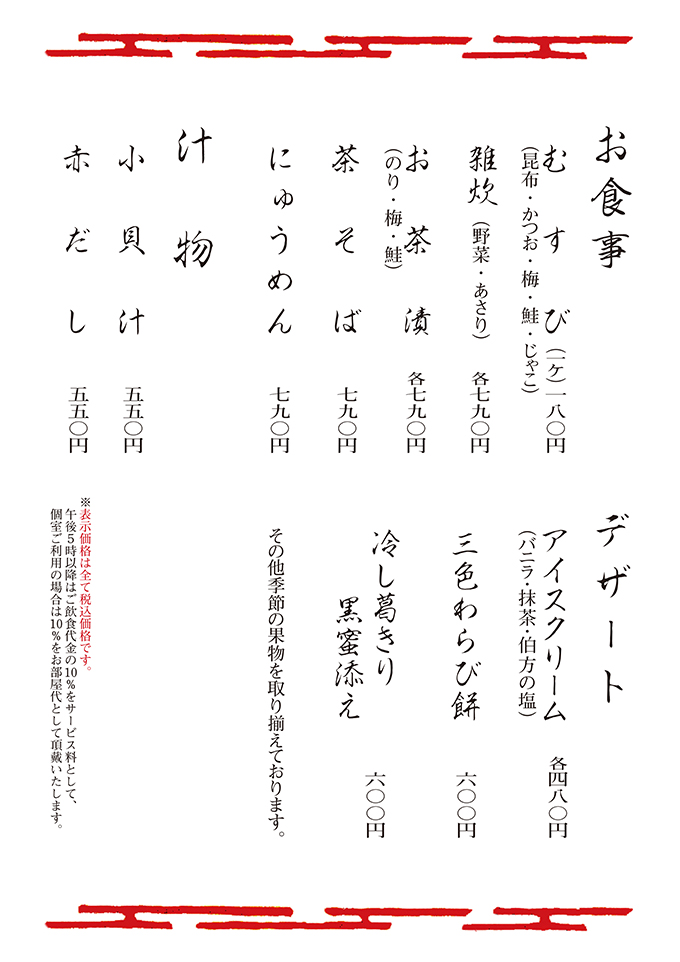 お食事
むすび(一ケ)一八〇円
(昆布・かつお・梅・鮭・じゃこ)
雑炊(野菜・あさり)各七九〇円
お茶漬 各七九〇円
(のり・梅・鮭)
茶そば 七九〇円
にゅうめん 七九〇円
汁物
小貝汁 五五〇円
赤だし 五五〇円
デザート
アイスクリーム 各四八〇円
(バニラ・抹茶・伯方の塩)
三色わらび餅 六〇〇円
冷し葛きり
黒蜜添え 六〇〇円
その他季節の果物を取り揃えております。
※表示価格は全て税込価格です。
午後5時以降はご飲食代金の10%をサービス料として、
個室ご利用の場合は10%をお部屋代として頂戴いたします。